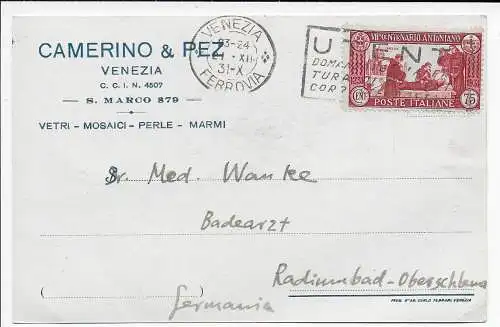 CAMERINO & PEZ
VENEZIA
C. C. I. N. 4507
S. MARCO 879
VETRI - MOSAICI - PERLE - MARMI
VENEZIA
23-24
21 · XII
31-X
FERROVIA
U
DOMA
TURA
COR
VII° CENTENARIO ANTONIANO
CENT
75
POSTE ITALIANE
Dr. Med. Wanke
Badearzt
Radiumbad-Oberschlema
Germania